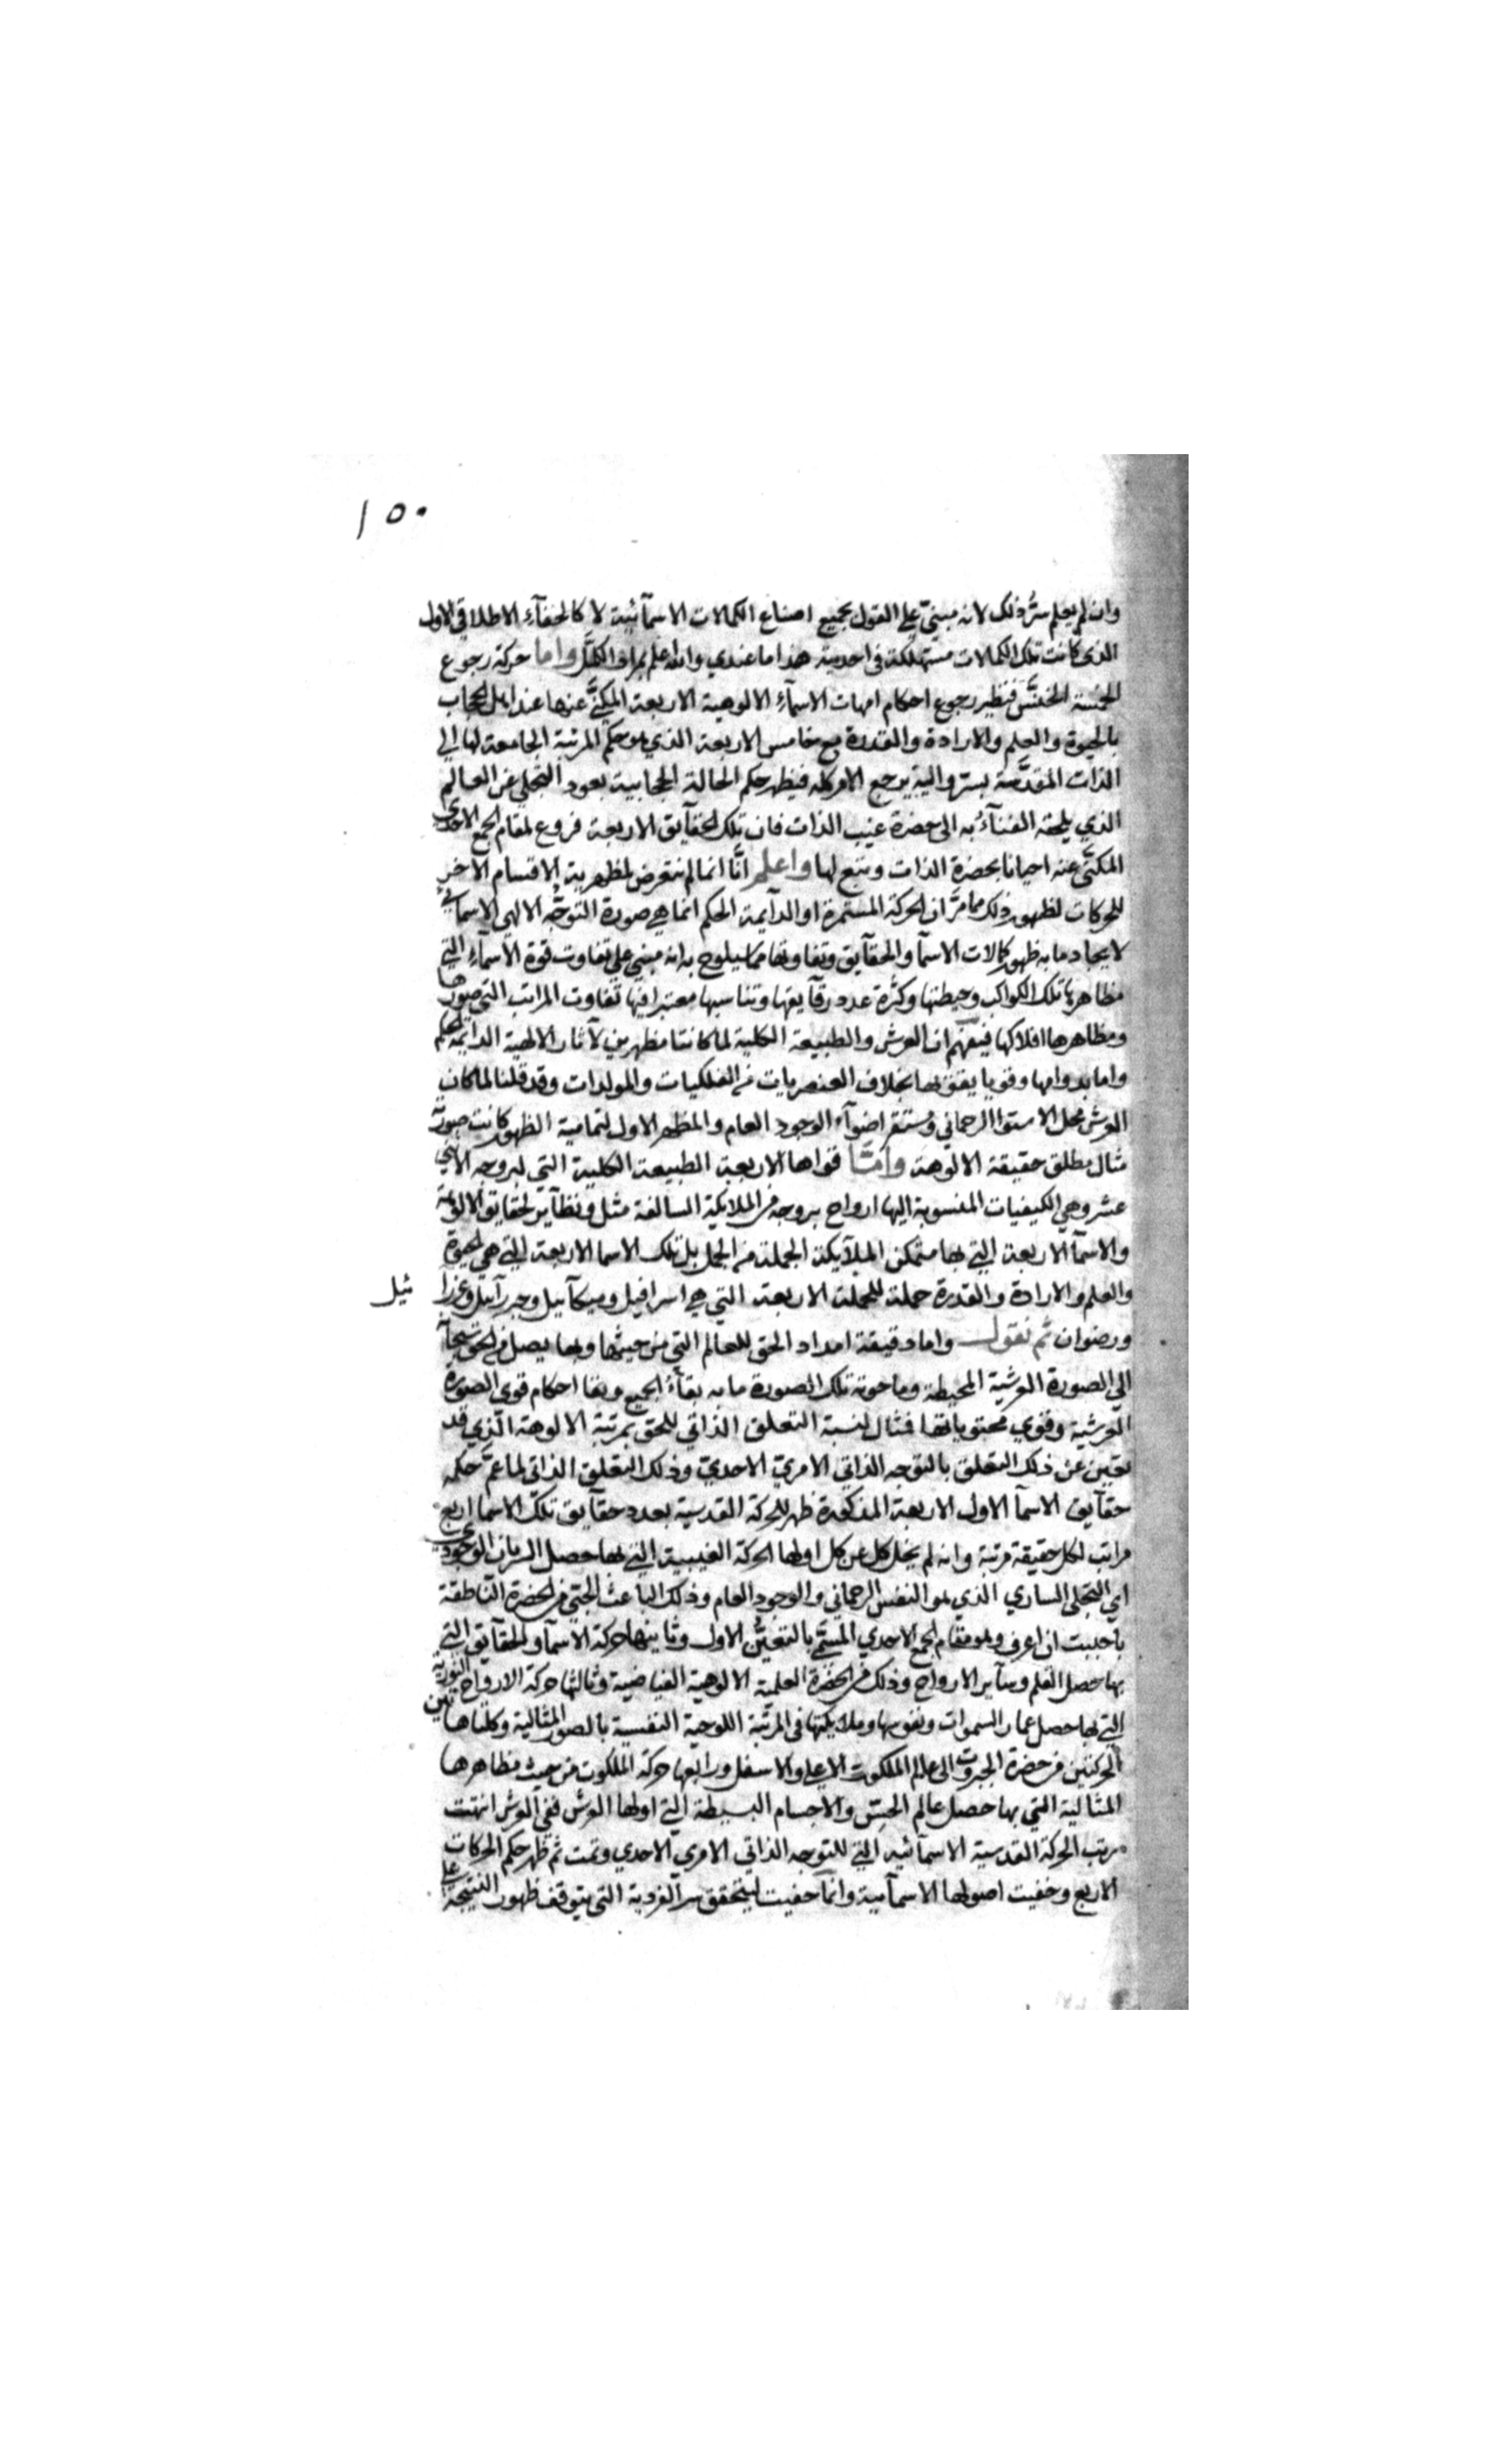 ١٥٠
وان لم يعلم سرُّ ذلك لانه مبنيّ على القول بجميع اصناع الكمالات الاسمآئية لا كالخفآء الاطلاقي الاول
الذى كانت تلك الكمالات مستهلكة فى احديته هذا ما عندي والله اعلم بمراد الكمَّل واما حركة رجوع
الخمسة الخنَّس فنظير رجوع احكام امهات الاسمآء الالوهية الاربعة المكنَّى عنها عند اهل الحجاب
بالحيوة والعلم والارادة والقدرة مع خامس الاربعة الذي هو حكم المرتبة الجامعة لها الى
الذات المقدَّسة بسرّ واليه يرجع الامر كله فيظهر حكم الحالة الحجابية بعود التجلى عن العالم
الذي يلحقه الفنآءُ به الى حضرة غيب الذات فان تلك الحقآيق الاربعة فروع لمقام الجمع الاحدى
المكنّى عنه احيانا بحضرة الذات وتبع لها واعلم انَّا انما لم نتعرض لمظهرية الاقسام الاخر
للحركات لظهور ذلك مما مرَّ ان الحركة المستمرة او الدآيمة الحكم انما هى صورة التوجُّه الالهى الاسمائى
لايجاد ما به ظهور كمالات الاسمآ والحقآيق وتفاوتها مما سيلوح به انه مبني على تفاوت قوة الاسمآء التي
مظاهرها تلك الكواكب وحيطتها وكثرة عدد رقآيقها وتناسبها معتبرا فيها تفاوت المراتب التى صورها
ومظاهرها افلاكها فيفهم ان العرش والطبيعة الكلية لما كانتا مظهرين لآثار الالهية الدايمة الحكم
داما بدوامها وقويا بقوتها بخلاف العنصريات من الفلكيات والمولدات وقد قلنا لما كان
العرش محل الاستوا الرحماني ومستقر اضوآء الوجود العام والمظهر الاول لتمامية الظهور كانت صورته
مثال مطلق حقيقة الالوهة وامَّا قواها الاربعة الطبيعة الكلية التي لبروجه الاثنى
عشر وهى الكيفيات المنسوبة اليها ارواح بروجه من الملائكة السالفة مثل ونظآير لحقايق الالوهة
والاسمآ الاربعة التي بها متمكن الملآيكة الحملة من الحمل بل تلك الاسما الاربعة التي هى الحيوة
والعلم والارادة والقدرة حملة للحملة الاربعة التي هى اسرافيل وميكآئيل وجبرآئيل وعزرا ئيل
ورضوان ثم نقول واما دقيقة امداد الحق للعالم التي من حيثها وبها يصل من الحق سبحانه
الى الصورة العرشية المحيطة وما حوته تلك الصورة ما به بقآءُ الجميع وبقا احكام قوى الصورة
العرشية وقوي محتوياتها فمثال لنسبة التعلق الذاتي للحق بمرتبة الالوهة الذي قد
تعين عن ذلك التعلق بالتوجه الذاتي الامريّ الاحديّ وذلك التعلق الذاتى لما عمَّ حكمه
حقآيق الاسمآ الاول الاربعة المذكورة ظهر للحركة القدسية بعدد حقآيق تلك الاسما اربع
مراتب لكل حقيقة مرتبة وانه لم يخل كل عن كل اولها الحركة الغيبية التي بها حصل السريان الوجودى
اى التجلى الساري الذي هو النفس الرحماني والوجود العام وذلك الباعث الحبّي من الحضرة الناطقة
باحببت ان اعرف وهو مقام الجمع الاحدي المسمَّى بالتعيُّن الاول وثانيتها حركة الاسمآ والحقآيق التي
بها حصل القلم وسآير الارواح وذلك من الحضرة العلمية الالوهية الفياضية وثالثها حركة الارواح النورية
التي بها حصل عمار السموات ونفوسها وملايكتها فى المرتبة اللوحية النفسية بالصور المثالية وكلتا هاتين
الحركتين من حضرة الجبروت الى عالم الملكوت الاعلى والاسفل ورابعها حركة الملكوت من حيث مظاهرها
المثالية التي بها حصل عالم الحسّ والاجسام البسيطة التي اولها العرش ففى العرش انتهت
مرتب الحركة القدسية الاسمآئيه التي للتوجه الذاتي الامري الاحدي وتمت ثم ظهر حكم الحركات
الاربع وخفيت اصولها الاسمآئية وانما خفيت ليتحقق سر الفردية التى يتوقف ظهور النتيجة على